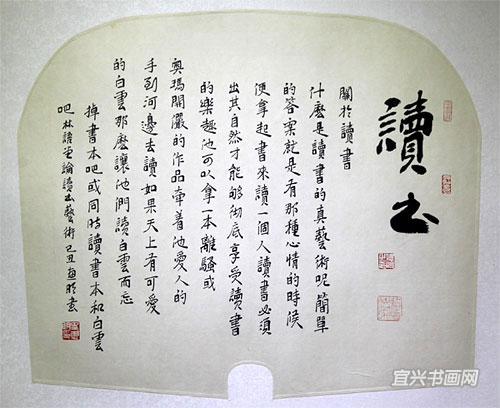 讀书
關於讀書
什麽是讀書的真藝術呢簡單
的答案就是有那種心情的時候
便拿起書來讀一個人讀書必須
出其自然才能够彻底享受讀書
的樂趣他可以拿一本離騷或
奥瑪開儼的作品牽着他愛人的
手到河邊去讀如果天上有可愛
的白雲那麽讓他們讀白雲而忘
掉書本吧或同時讀書本和白雲
吧林語堂論讀书藝術己丑
宜兴书画网